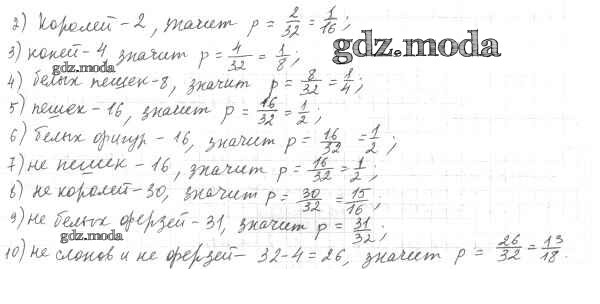 2) королей - 2, значит p = 2/32 = 1/16;
3) коней - 4, значит p = 4/32 = 1/8;
gdz.moda
gdz.moda
4) белых пешек - 8, значит p = 8/32 = 1/4;
5) пешек - 16, значит p = 16/32 = 1/2;
6) белых фигур - 16, значит p = 16/32 = 1/2;
7) не пешек - 16, значит p = 16/32 = 1/2;
8) не королей - 30, значит p = 30/32 = 15/16;
9) не белых ферзей - 31, значит p = 31/32;
gdz.moda
10) не слонов и не ферзей - 32-4 = 26, значит p = 26/32 = 13/18.